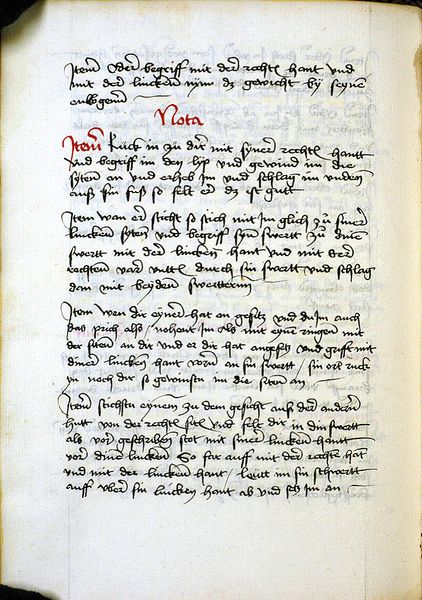 Item Oder begriff mit der rechten hant vnd
mit der lincken nym dz gewicht by seynen
enlbogenn
Nota
Item Ruck in zu dir mit syner rechten hantt
vnd begriff im den lyp vnd gewind im die
syten an vnd erheb im vnd schlag im vnden
auß sin fuß so felt er dz ist gutt
Item wan er sticht so stich mit im glich zu siner
lincken syten vnd begriff syn swertt zu dinem
swert mit der lincken hant vnd mit der
rechten var durch sin swertt vnd schlag
dan mit beyden swertternn
Item wen dir eyner hat an gesetzt vnd du im auch
das prich also im als mit eyner ringen mit
der siten an dir vnd er dir hat angesetzt vnd griff mit
diner lincken hant vorn an sin swertt sin ort ruck
yn noch dir so gewinstu im die siten an
Item stichstu eynem zu dem gesicht auß der andern
hutt von der rechten siten vnd felt dir in din swertt
als vor geschriben stot mit siner lincken hantt
vor diner lincken So far auff mit der rechten hant
vnd mit der lincken hant im sin schwertt
auff vber sin lincken hant ab vnd setz im an